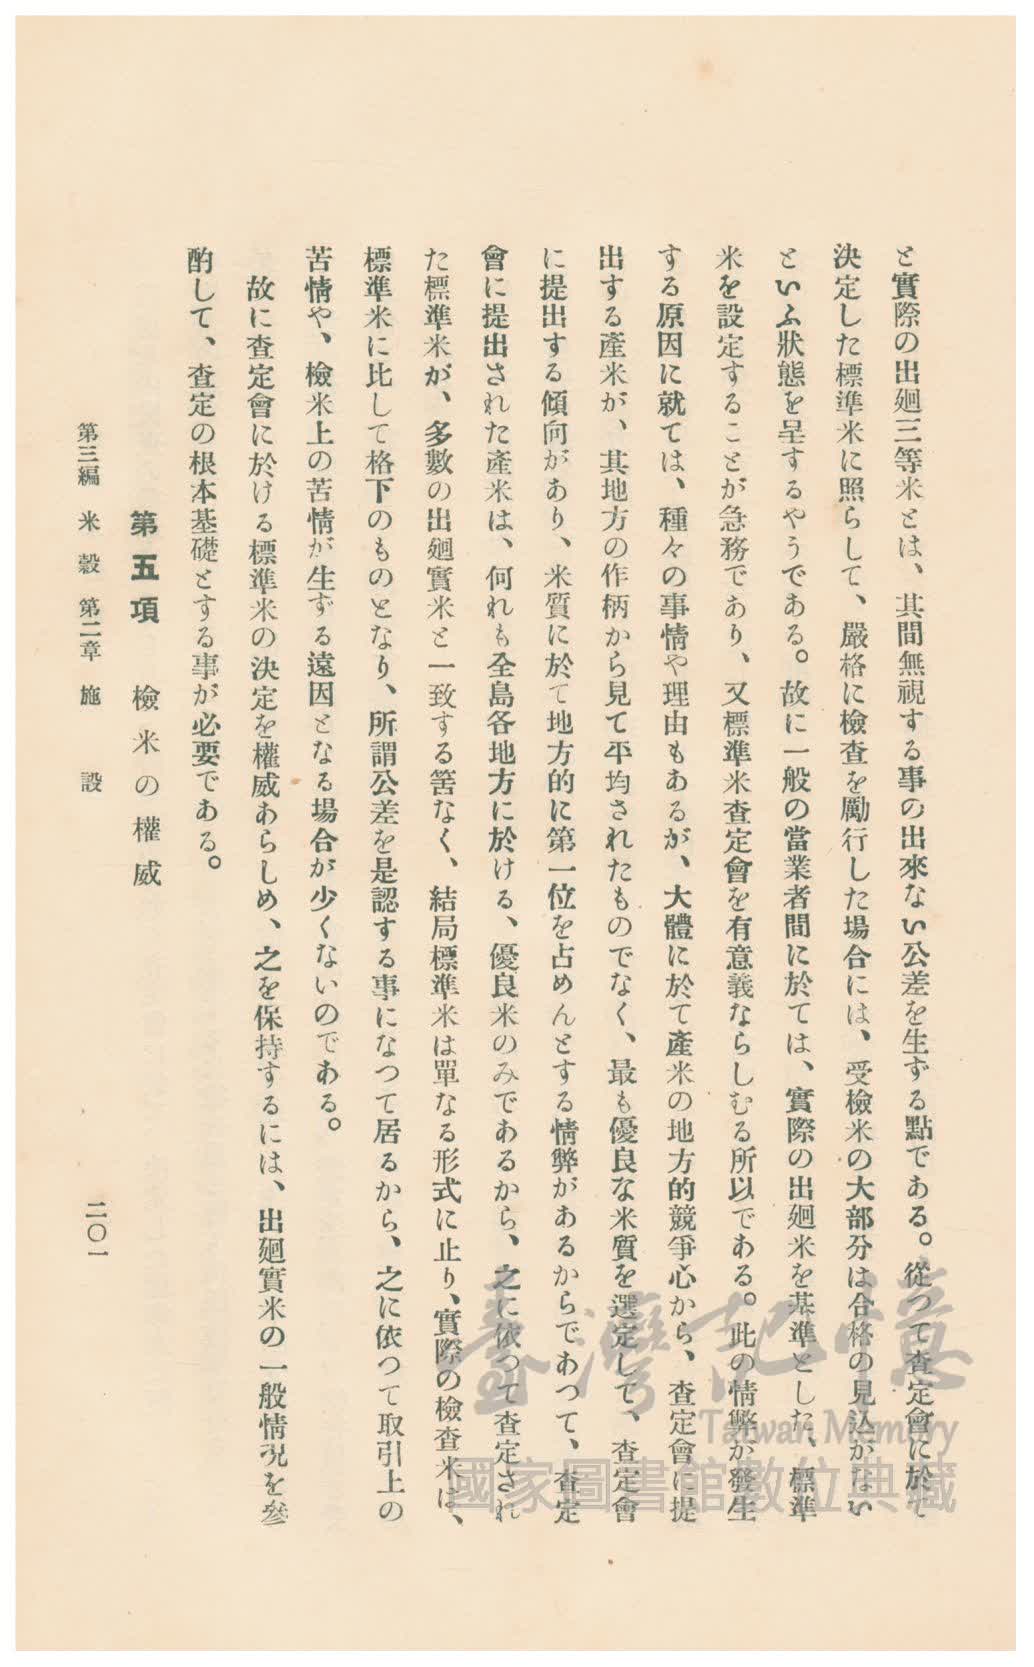 と實際の出廻三等米とは、其間無視する事の出來ない公差を生ずる點である。從つて査定會に於て
決定した標準米に照らして、嚴格に檢査を勵行した場合には、受檢米の大部分は合格の見込がない
といふ狀態を呈するやうである。故に一般の當業者間に於ては、實際の出廻米を基準とした、標準
米を設定することが急務であり、又標準米査定會を有意義ならしむる所以である。此の情弊が發生
する原因に就ては、種々の事情や理由もあるが、大體に於て產米の地方的競爭心から、査定會に提
出する產米が、其地方の作柄から見て平均されたものでなく、最も優良な米質を選定して、査定會
に提出する傾向があり、米質に於て地方的に第一位を占めんとする情弊があるからであつて、査定
會に提出された產米は、何れも全島各地方に於ける、優良米のみであるから、之に依つて査定され
た標準米が、多數の出廻實米と一致する筈なく、結局標準米は單なる形式に止り、實際の檢査米は、
標準米に比して格下のものとなり、所謂公差を是認する事になつて居るから、之に依つて取引上の
苦情や、檢米上の苦情が生ずる遠因となる場合が少くないのである。
故に査定會に於ける標準米の決定を權威あらしめ、之を保持するには、出廻實米の一般情況を參
酌して、査定の根本基礎とする事が必要である。
第五項 檢米の權威
第三編 米穀 第二章 施設 二〇一
臺灣記憶
Taiwan Memory
國家圖書館數位典藏